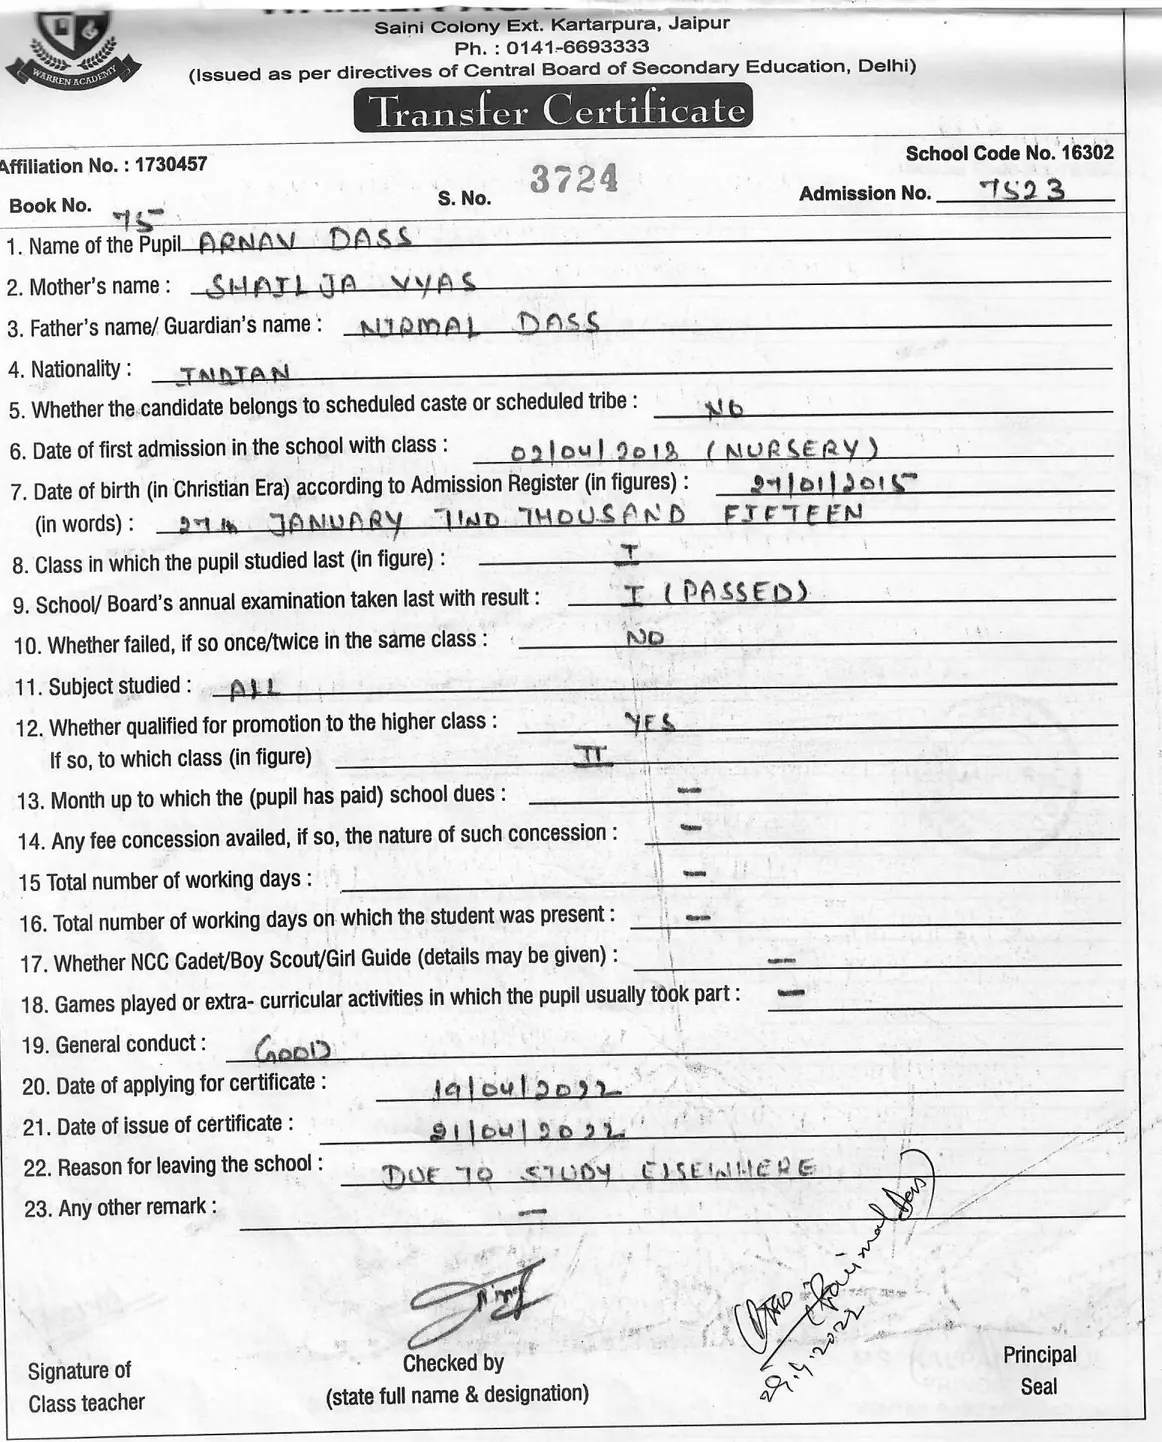 WARREN ACADEMY
Saini Colony Ext. Kartarpura, Jaipur
Ph. : 0141-6693333
(Issued as per directives of Central Board of Secondary Education, Delhi)
Transfer Certificate
Affiliation No. : 1730457 School Code No. 16302
Book No. 75 S. No. 3724 Admission No. 7523
1. Name of the Pupil ARNAV DASS
2. Mother's name : SHAILJA VYAS
3. Father's name/ Guardian's name : NIRMAL DASS
4. Nationality : INDIAN
5. Whether the candidate belongs to scheduled caste or scheduled tribe : NO
6. Date of first admission in the school with class : 02/04/2018 (NURSERY)
7. Date of birth (in Christian Era) according to Admission Register (in figures) : 27/01/2015
(in words) : 27th JANUARY TWO THOUSAND FIFTEEN
8. Class in which the pupil studied last (in figure) : I
9. School/ Board's annual examination taken last with result : I (PASSED)
10. Whether failed, if so once/twice in the same class : NO
11. Subject studied : ALL
12. Whether qualified for promotion to the higher class : YES
If so, to which class (in figure) II
13. Month up to which the (pupil has paid) school dues : —
14. Any fee concession availed, if so, the nature of such concession : —
15 Total number of working days : —
16. Total number of working days on which the student was present : —
17. Whether NCC Cadet/Boy Scout/Girl Guide (details may be given) : —
18. Games played or extra- curricular activities in which the pupil usually took part : —
19. General conduct : GOOD
20. Date of applying for certificate : 19/04/2022
21. Date of issue of certificate : 21/04/2022
22. Reason for leaving the school : DUE TO STUDY ELSEWHERE
23. Any other remark : —
Signature of
Class teacher
Checked by
(state full name & designation)
Principal
Seal